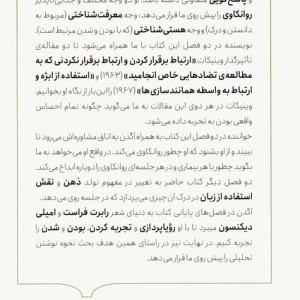 و پاسخ‌گویی متفاوتی داشته باشد. او دو وجه مختلف و جدایی‌ناپذیر
روانکاوی را پیش روی ما قرار می‌دهد: وجه معرفت‌شناختی (مربوط به
دانستن و درک) و وجه هستی‌شناختی (که با بودن و شدن مرتبط است).
نویسنده در دو فصل این کتاب با ما همراه می‌شود تا دو مقاله‌ی
تأثیرگذار وینیکات «ارتباط برقرار کردن و ارتباط برقرار نکردنی که به
مطالعه‌ی تضادهایی خاص انجامید» (۱۹۶۳) و «استفاده از ابژه و
ارتباط به واسطه همانندسازی‌ها» (۱۹۶۷) را این‌بار از نگاه او بخوانیم.
وینیکات در هر دوی این مقالات به ما می‌گوید چگونه تمام احساس
واقعی بودن به تجربه داده می‌شود.
خواننده در دو فصل این کتاب به همراه آگدن به اتاق مشاوره‌اش می‌رود تا
ببیند و از او بشنود که او چطور روانکاوی می‌کند. در واقع او می‌خواهد به ما
بگوید چطور با هر بیماری و در هر جلسه‌ای روانکاوی را دوباره ابداع می‌کند.
دو فصل دیگر کتاب حاضر به تغییر در مفهوم تولد ذهن و نقش
استفاده از زبان در درک آن چیزی می‌پردازد که در جلسه روی می‌دهد.
آگدن در فصل‌های پایانی کتاب به دنیای شعر رابرت فراست و امیلی
دیکنسون می‌برد تا با او رؤیاپردازی و تجربه کردن، بودن و شدن را
تجربه کنیم. در نهایت نیز در راستای همین هدف بحث نحوه نوشتن
تحلیلی را پیش روی ما قرار می‌دهد.